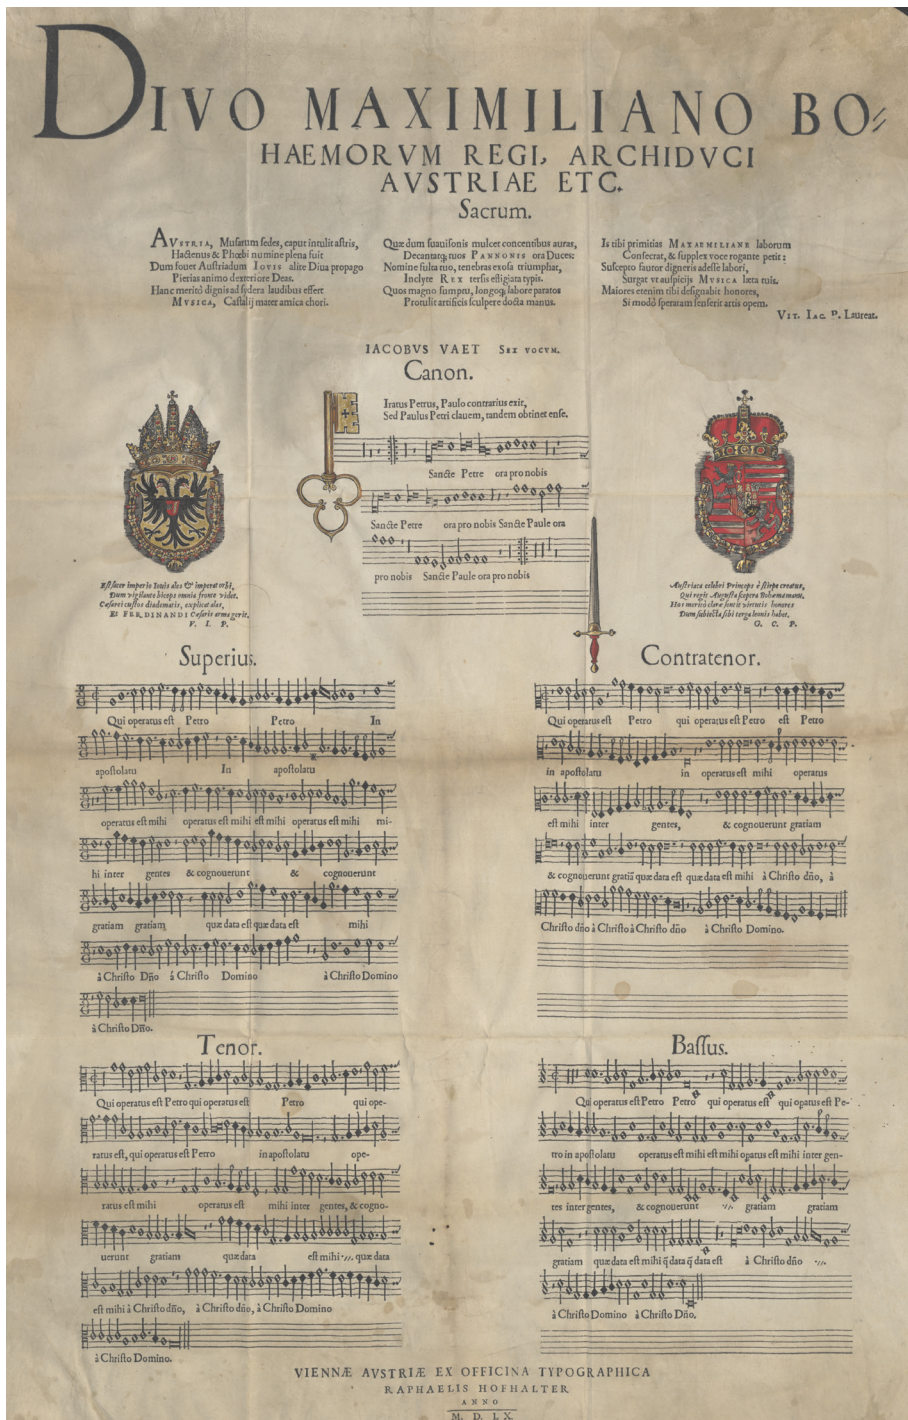 DIVO MAXIMILIANO BO=
HAEMORVM REGI, ARCHIDVCI
AVSTRIAE ETC.
Sacrum.
AVSTRIA, Musarum sedes, caput intulit astris,
Hactenus & Phœbi numine plena fuit
Dum fouet Austriadum IOVIS alite Diua propago
Pierias animo dexteriore Deas.
Hanc meritò dignis ad sydera laudibus effert
MVSICA, Castalij mater amica chori.
Quæ dum suauisonis mulcet concentibus auras,
Decantatq; tuos PANNONIS ora Duces:
Nomine fulta tuo, tenebras exosa triumphat,
Inclyte REX tersis effigiata typis.
Quos magno sumptu, longoq; labore paratos
Protulit artificis sculpere docta manus.
Is tibi primitias MAXAEMILIANE laborum
Consecrat, & supplex voce rogante petit:
Suscepto fautor digneris adesse labori,
Surgat vt auspicijs MVSICA læta tuis.
Maiores etenim tibi designabit honores,
Si modò speratam senserit artis opem.
VIT. IAC. P. Laureat.
IACOBVS VAET SEX VOCVM.
Canon.
Iratus Petrus, Paulo contrarius exit,
Sed Paulus Petri clauem, tandem obtinet ense.
Sancte Petre ora pro nobis
Sancte Petre ora pro nobis Sancte Paule ora
pro nobis Sancte Paule ora pro nobis
Est sacer imperio Iouis ales & imperat orbi,
Dum vigilante biceps omnia fronte videt.
Cæsarei custos diadematis, explicat alas,
Et FERDINANDI Cæsaris arma gerit.
V. I. P.
Austriaca celebri Princeps è stirpe creatus,
Qui regit Augusta sceptra Bohæma manu.
Hos meritò claræ sentit virtutis honores
Dum subiecta sibi terga leonis habet.
G. C. P.
Superius.
Qui operatus est Petro Petro In
apostolatu In apostolatu
operatus est mihi operatus est mihi est mihi operatus est mihi mi-
hi inter gentes & cognouerunt & cognouerunt
gratiam gratiam quæ data est quæ data est mihi
à Christo Dño á Christo Domino à Christo Domino
à Christo Dño.
Contratenor.
Qui operatus est Petro qui operatus est Petro est Petro
in apostolatu in operatus est mihi operatus
est mihi inter gentes, & cognouerunt gratiam
& cognouerunt gratiã quæ data est quæ data est mihi à Christo dño, à
Christo dño à Christo à Christo dño à Christo Domino.
Tenor.
Qui operatus est Petro qui operatus est Petro qui ope-
ratus est, qui operatus est Petro in apostolatu ope-
ratus est mihi operatus est mihi inter gentes, & cogno-
uerunt gratiam quæ data est mihi ·//. quæ data
est mihi à Christo dño, à Christo dño, à Christo Domino
à Christo Domino.
Bassus.
Qui operatus est Petro Petro qui operatus est qui opatus est Pe-
tro in apostolatu operatus est mihi est mihi opatus est mihi inter gen-
tes inter gentes, & cognouerunt ·//. gratiam gratiam
gratiam quæ data est mihi q̃ data q̃ data est à Christo dño ·//.
à Christo Domino à Christo Dño.
VIENNÆ AVSTRIÆ EX OFFICINA TYPOGRAPHICA
RAPHAELIS HOFHALTER
ANNO
M. D. LX.